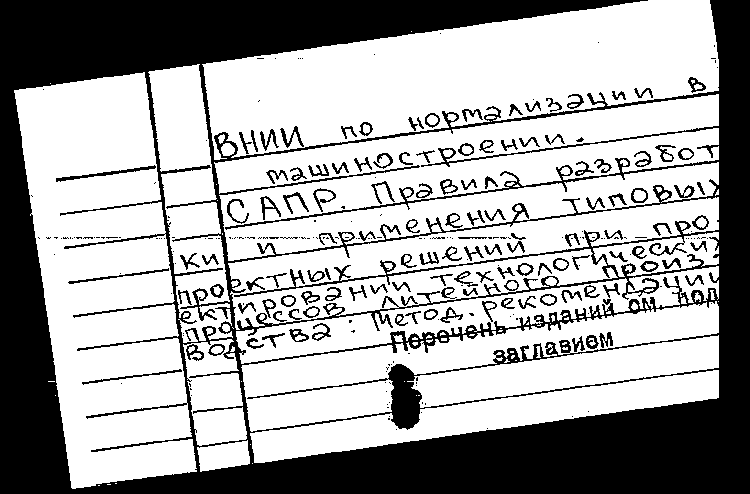 ВНИИ по нормализации в
машиностроении.
САПР. Правила разработ
ки и применения типовых
проектных решений при про-
ектировании технологических
процессов литейного произ-
водства: Метод. рекомендации
Перечень изданий см. под
заглавием